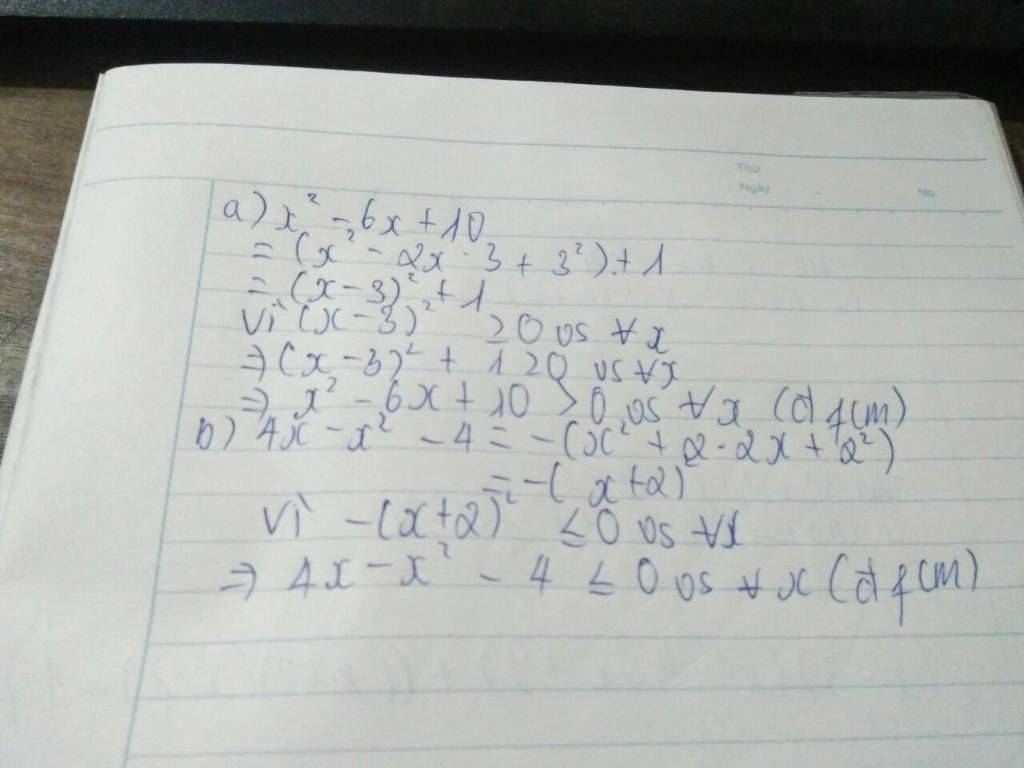 Thứ
Ngày
No.
a) x² - 6x + 10
= (x² - 2x · 3 + 3²) + 1
= (x - 3)² + 1
Vì (x - 3)² ≥ 0 vs ∀x
⇒ (x - 3)² + 1 > 0 vs ∀x
⇒ x² - 6x + 10 > 0 vs ∀x (đfcm)
b) 4x - x² - 4 = -(x² + 2·2x + 2²)
= -(x+2)²
Vì -(x+2)² ≤ 0 vs ∀x
⇒ 4x - x² - 4 ≤ 0 vs ∀x (đfcm)